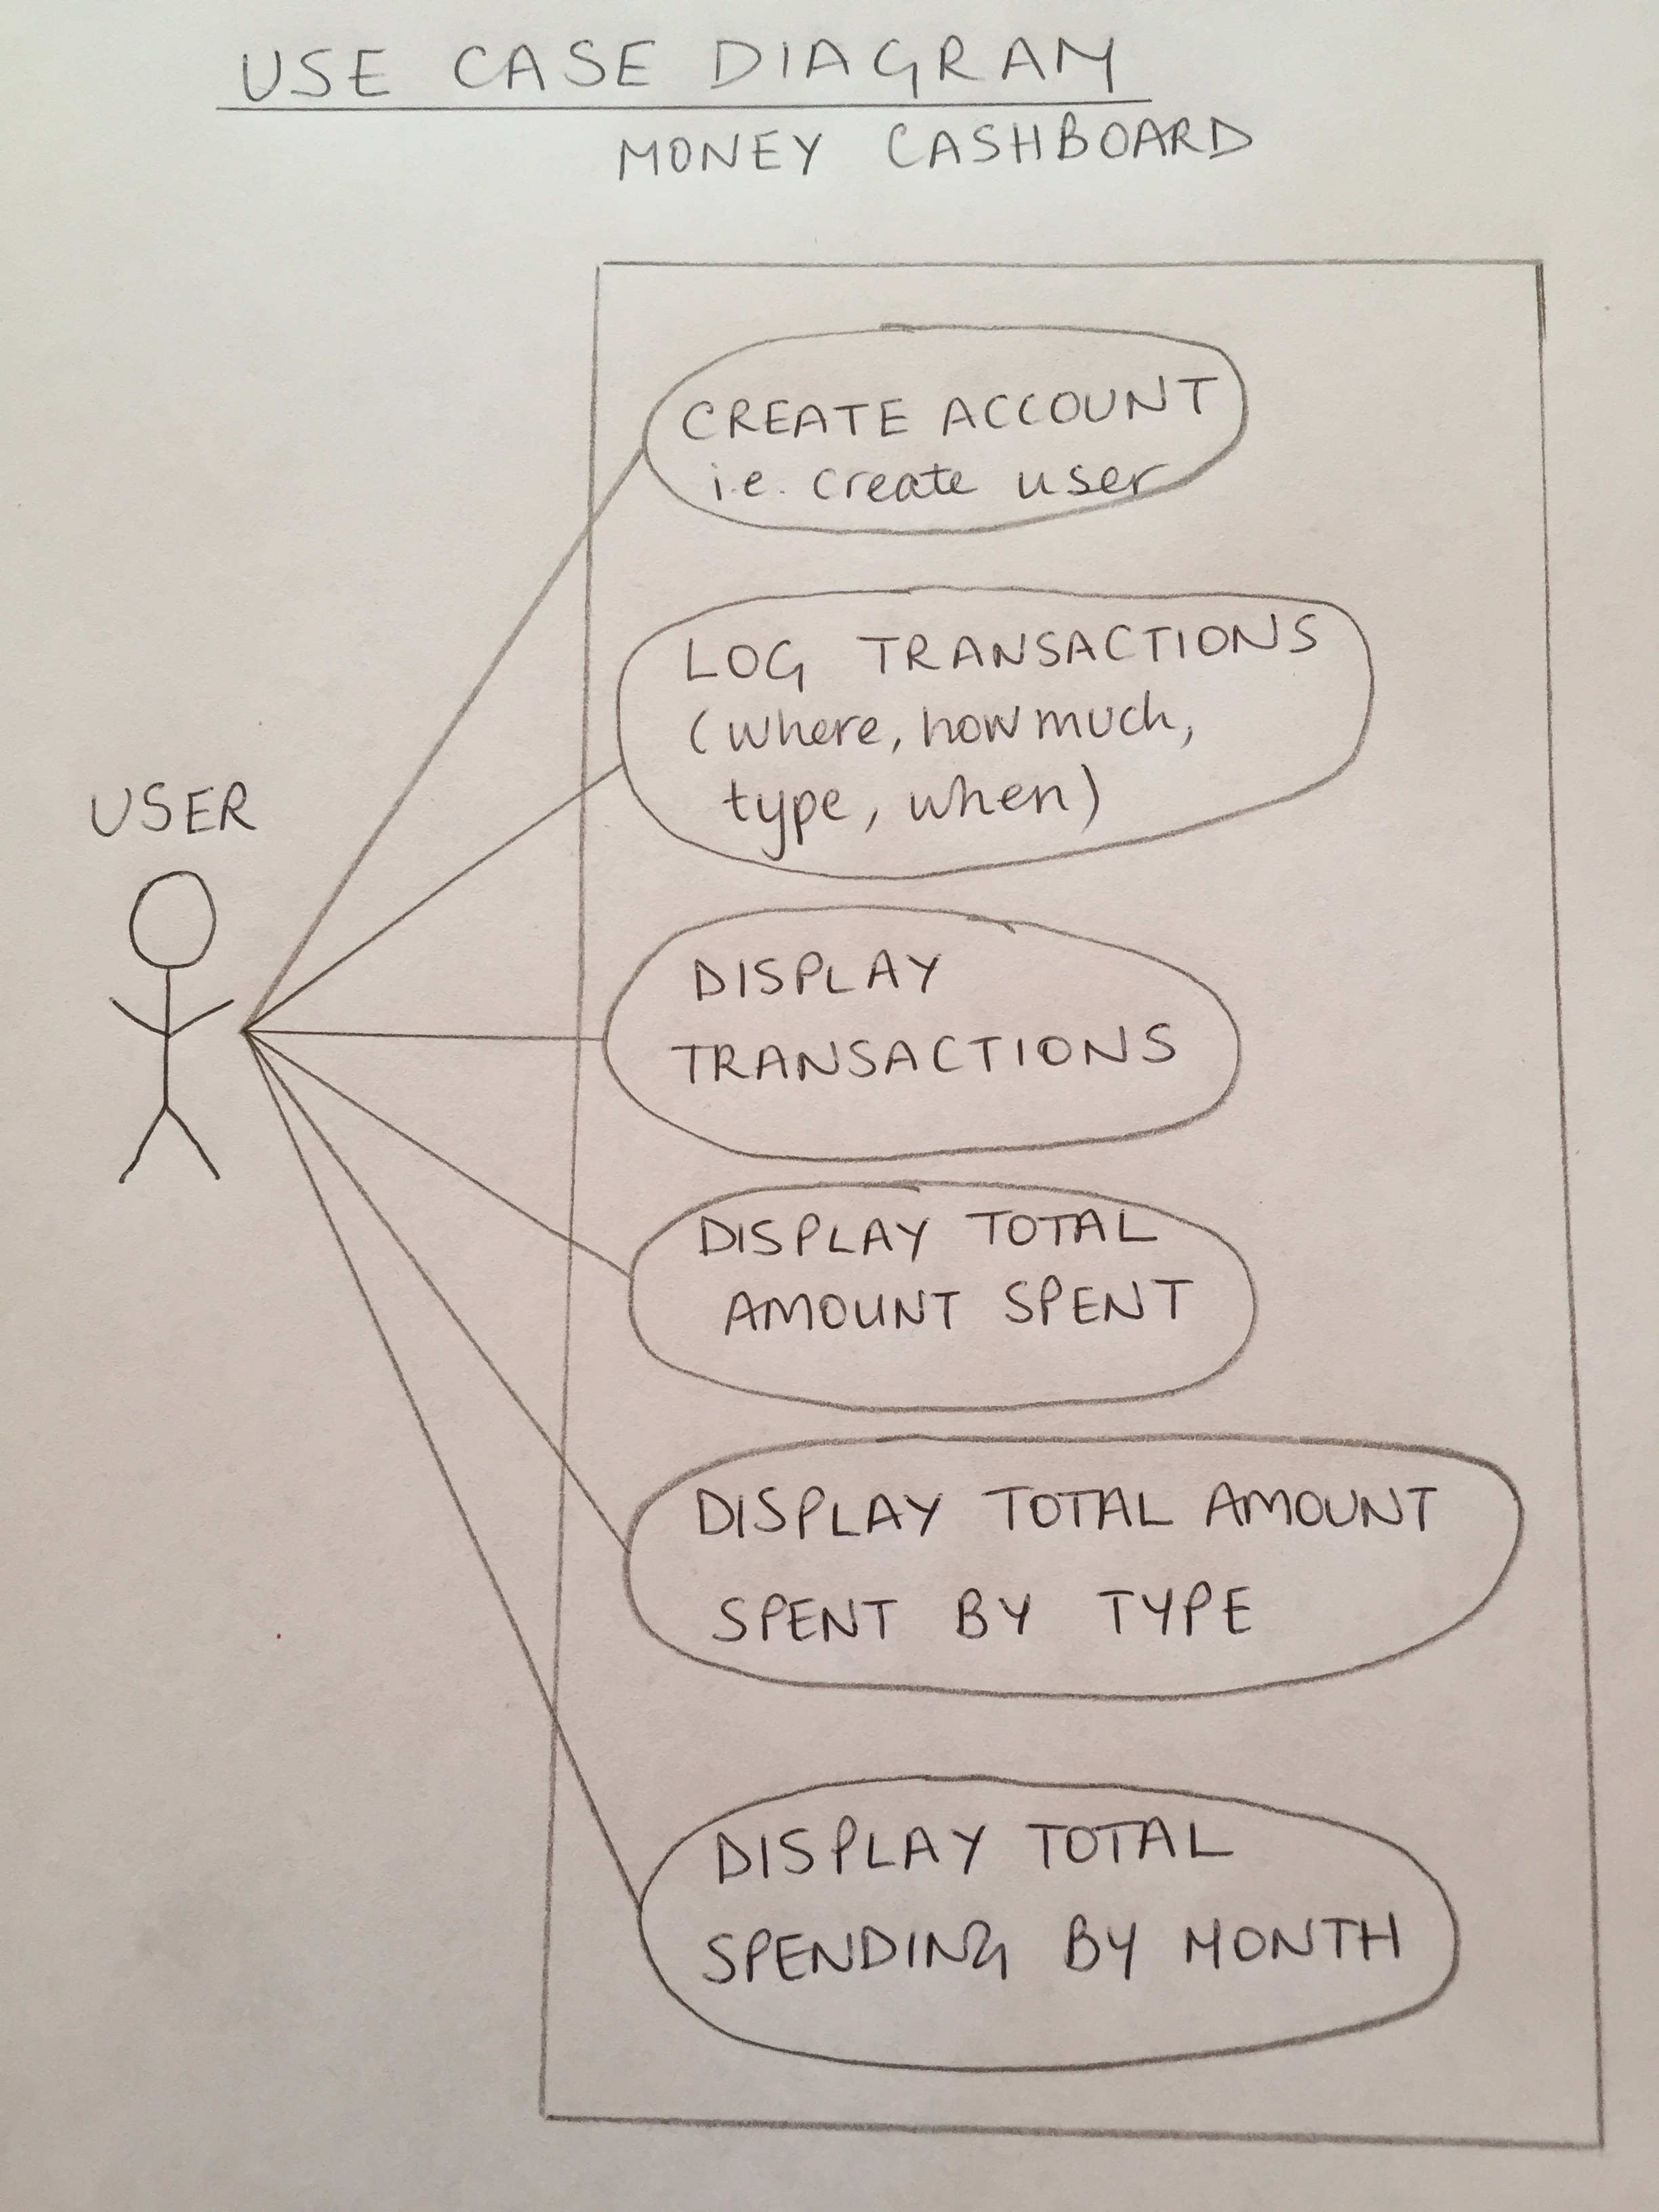 USE CASE DIAGRAM
MONEY CASHBOARD
CREATE ACCOUNT
i.e. create user
LOG TRANSACTIONS
(where, how much,
type, when)
USER
DISPLAY
TRANSACTIONS
DISPLAY TOTAL
AMOUNT SPENT
DISPLAY TOTAL AMOUNT
SPENT BY TYPE
DISPLAY TOTAL
SPENDING BY MONTH